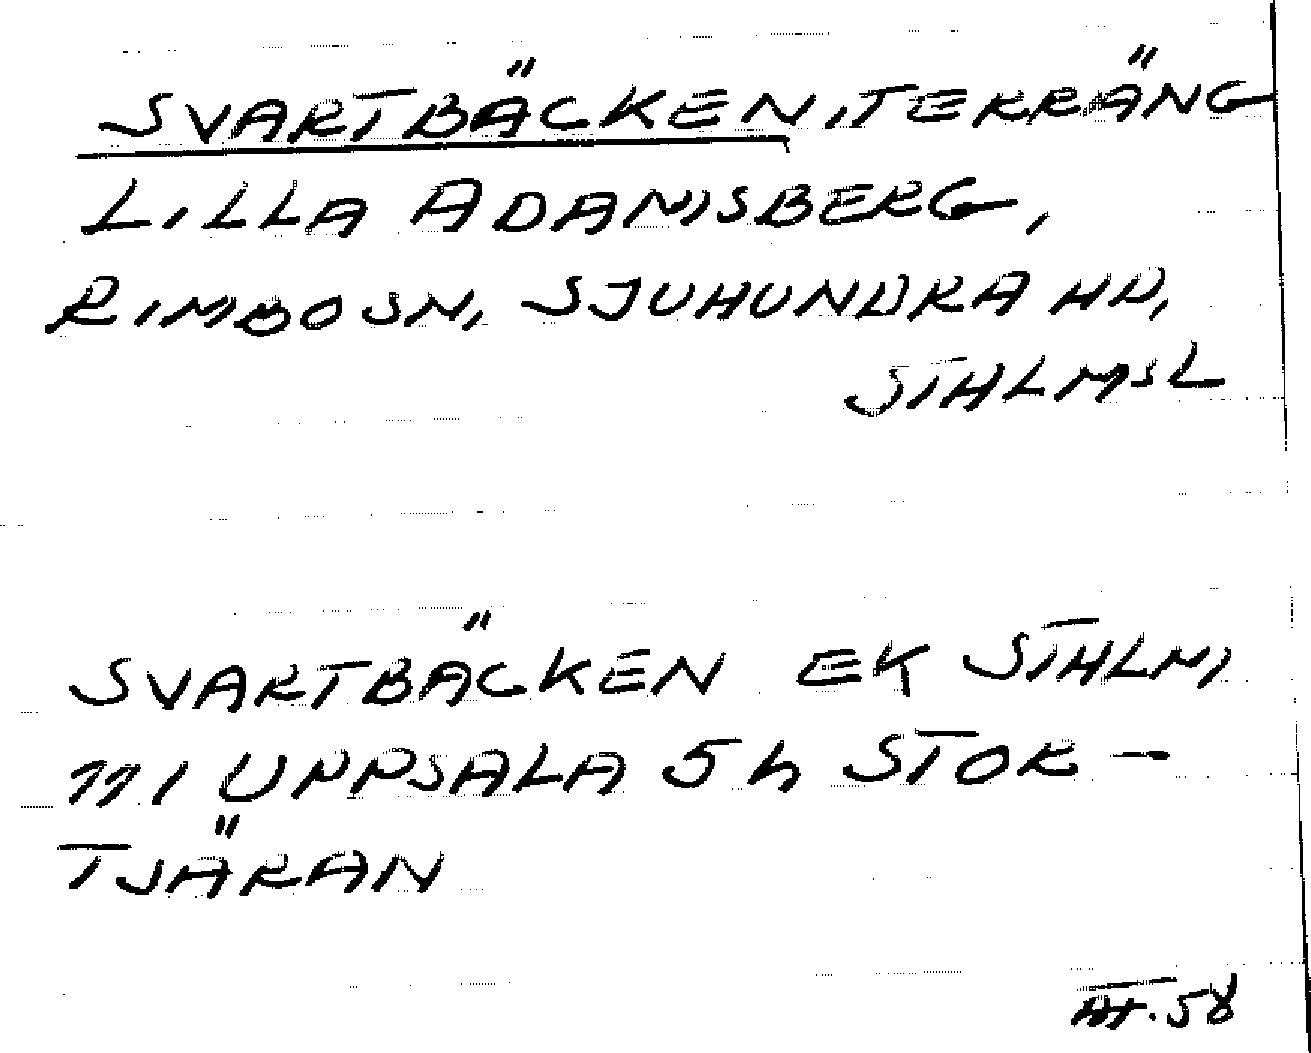 SVARTBÄCKEN, TERRÄNG
LILLA ADAMSBERG,
RIMBO SN, SJUHUNDRA HD,
STHLMSL
SVARTBÄCKEN EK STHLM
111 UPPSALA 5h STOR-
TJÄRAN
58